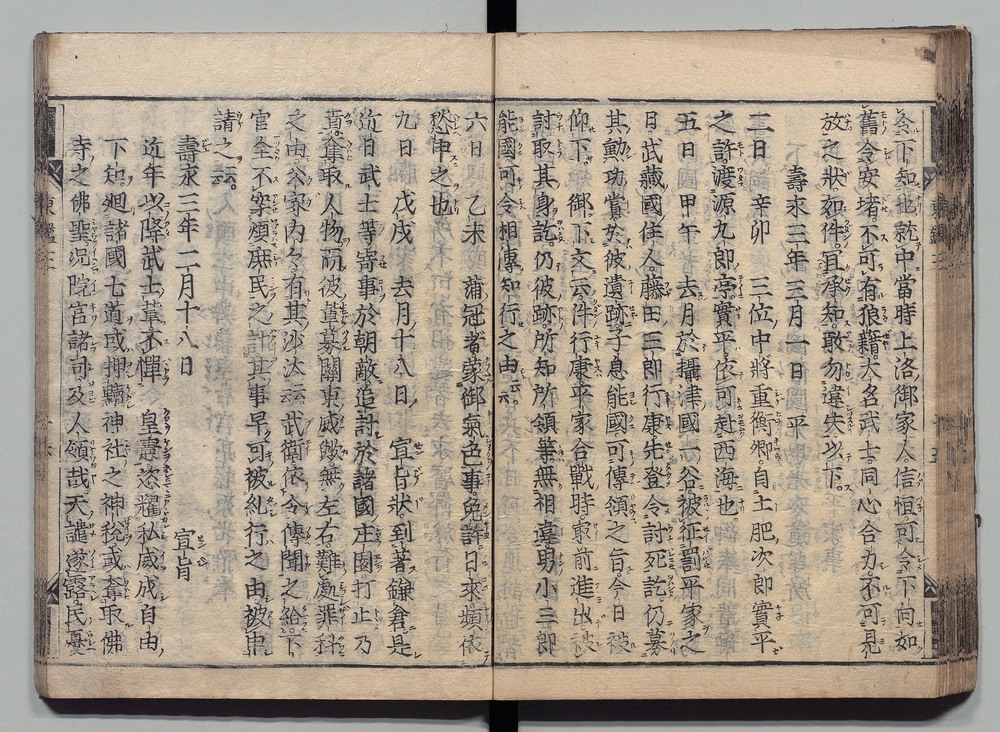 令下知也就中當時上洛御家人信恒可令下向如
舊令安堵不可有狼藉大名武士同心合力不可見
放之狀如件宜承知敢勿違失以下
壽永三年三月一日　平
二日　辛卯　三位中將重衡卿自土肥次郎實平
之許渡源九郎亭實平依可赴西海也
五日甲午　去月於攝津國一谷被征罰平家之
日武藏國住人藤田三郎行康先登令討死訖仍募
其勳功賞於彼遺跡子息能國可傳領之旨今日被
仰下御下文云件行康平家合戰時最前進出被
討取其身訖仍彼跡所知所領等無相違男小三郎
能國可令相傳知行之由云云
六日　乙未　蒲冠者蒙御氣色事免許日來頻依
愁申之也
九日　戊戌　去月十八日　宣旨狀到著鎌倉是
近日武士等寄事於朝敵追討於諸國庄園打止乃
貢奪取人物而彼輩募關東威歟無左右難處罪科
之由公家內々有其沙汰云云武衛依令傳聞之給下
官全不案煩庶民之計其事早可被糺行之由被申
請之云云
壽永三年二月十八日　宣旨
近年以降武士輩不憚　皇憲恣耀私威成自由
下知廻諸國七道或押黷神社之神稅或奪取佛
寺之佛聖況院宮諸司及人領哉天譴遂露民憂